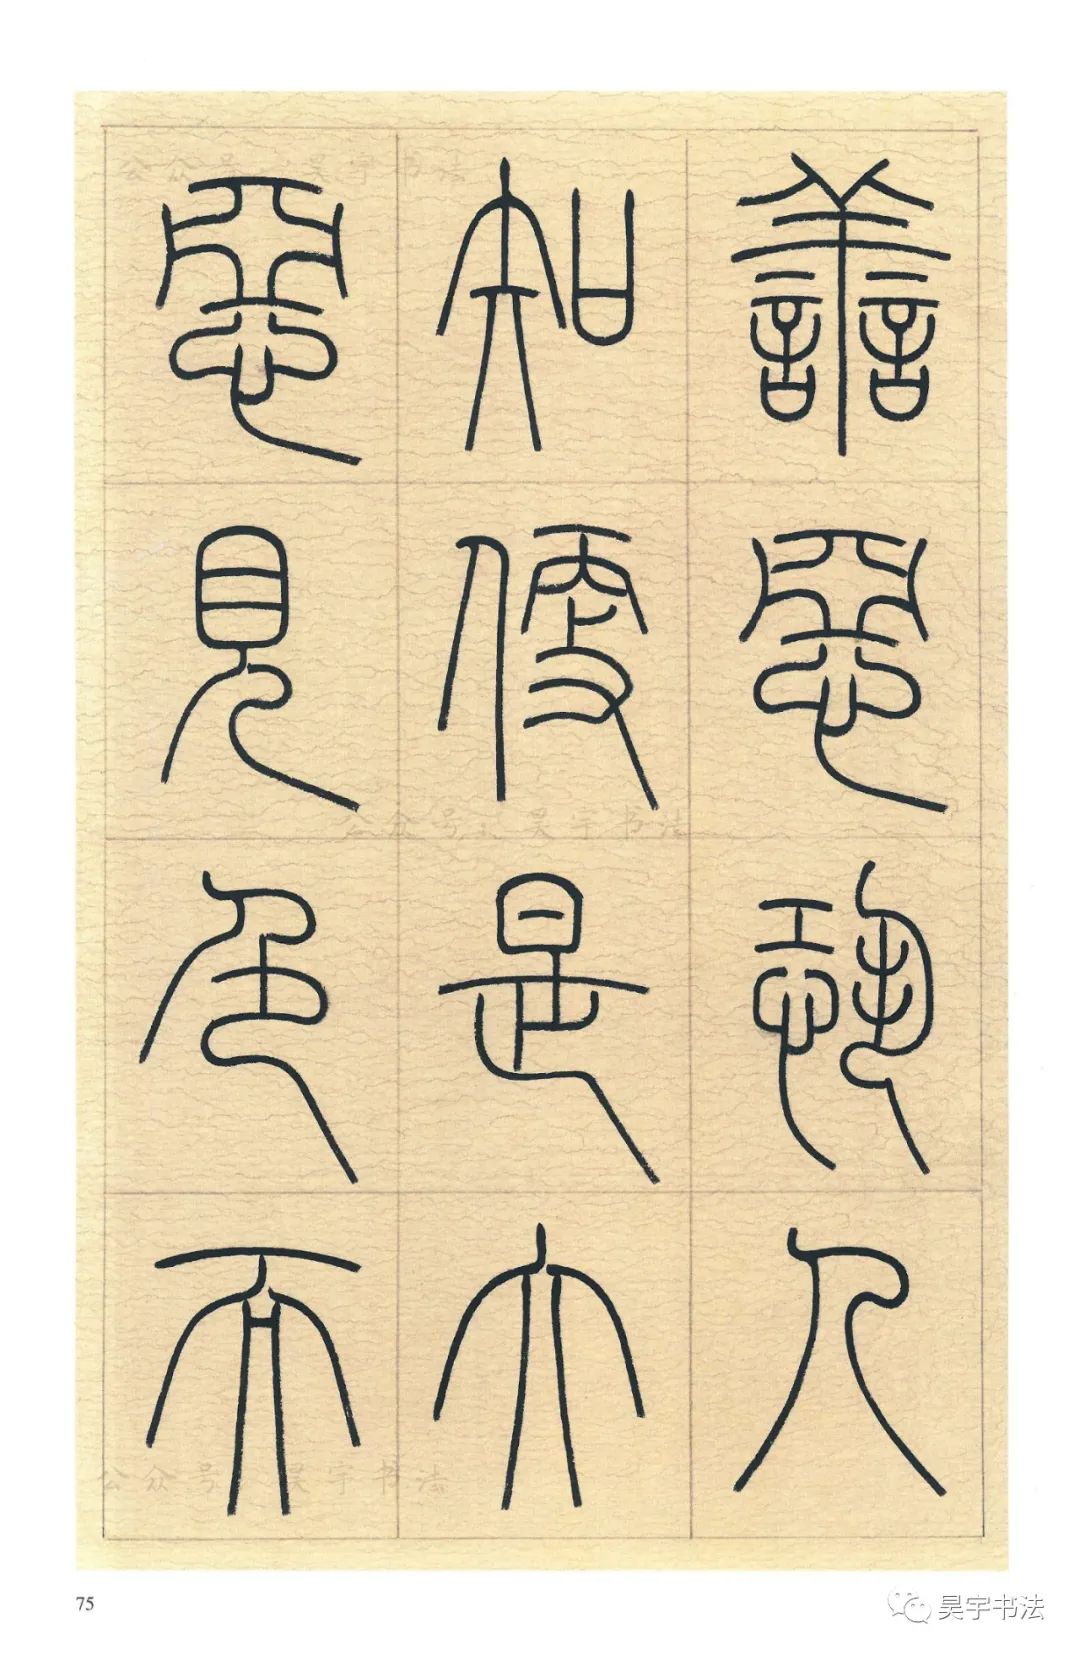 善惡恐人
知便是大
惡見色而
公众号：昊宇书法
公众号：昊宇书法
公众号：昊宇书法
75
昊宇书法